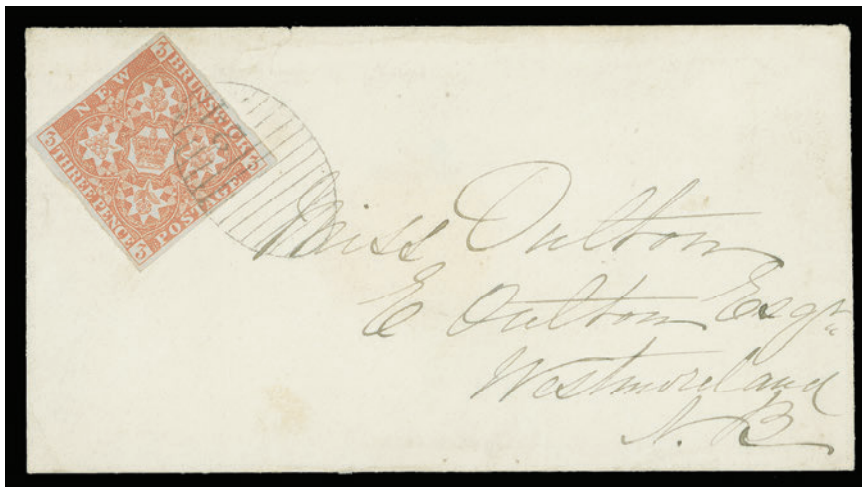 3 NEW BRUNSWICK 3
3 THREE PENCE POSTAGE 3
Miss Oulton
E Oulton Esqr
Westmoreland
N. B